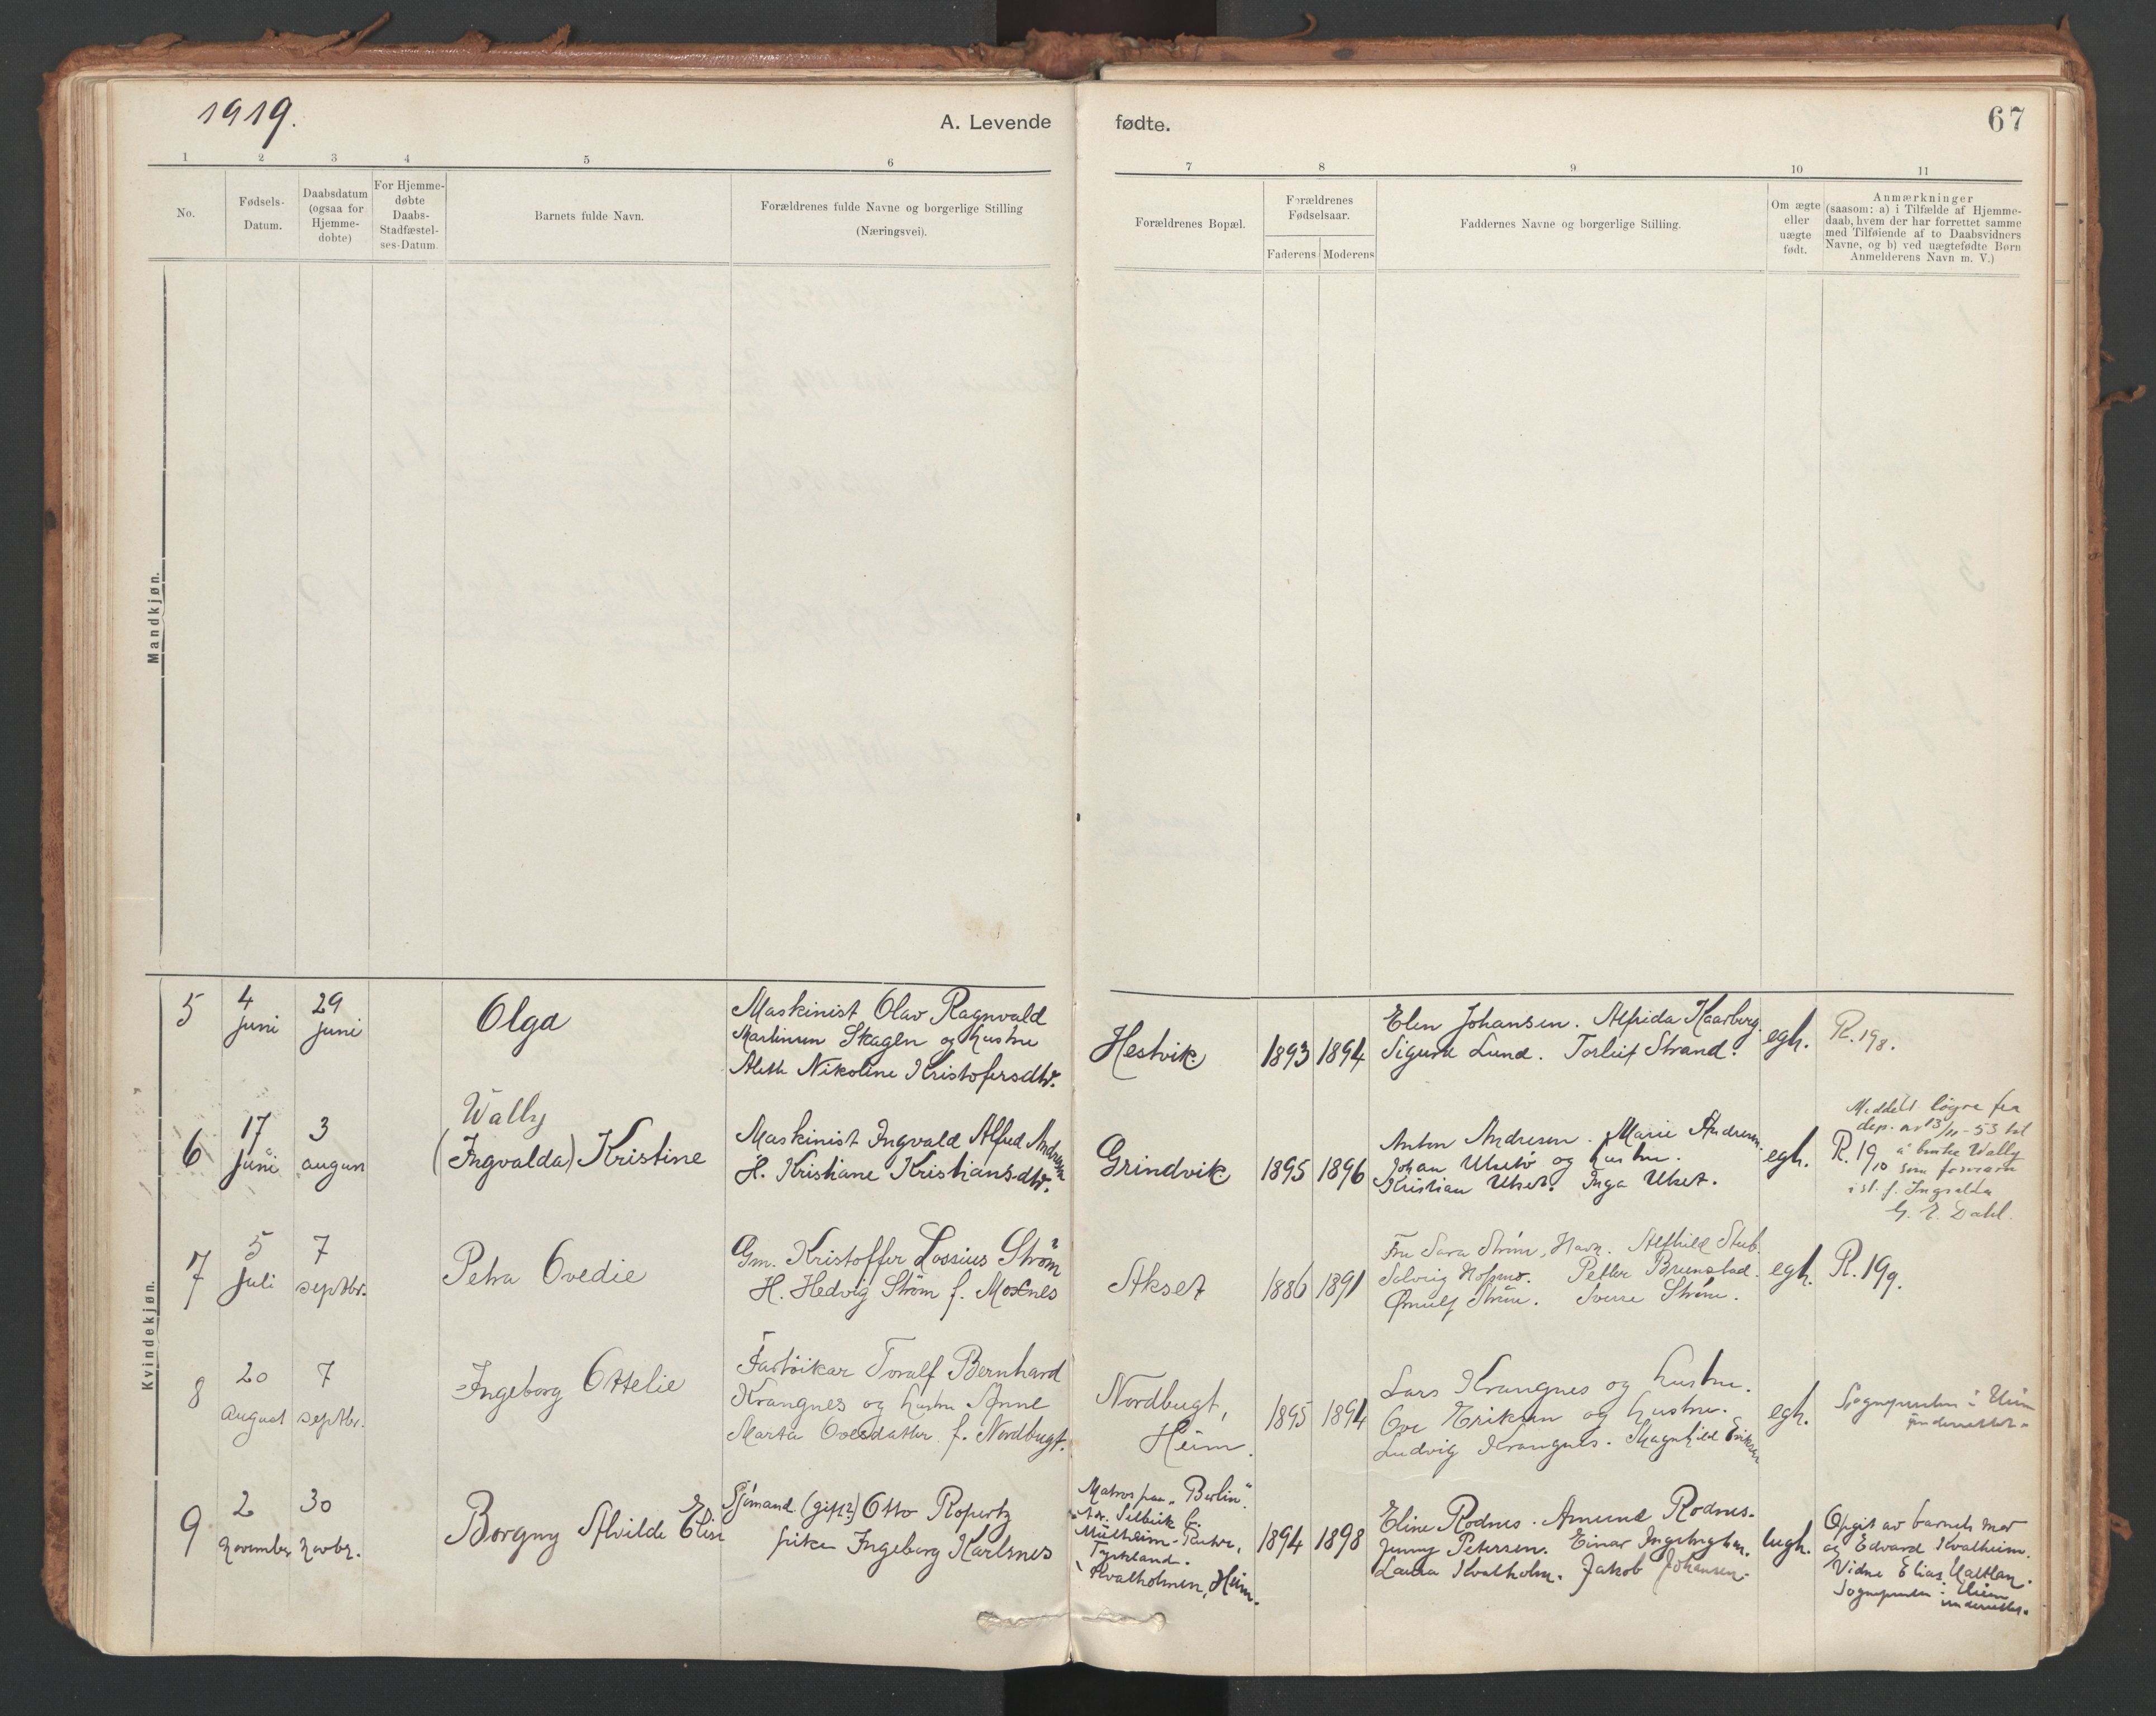 1919.
A. Levende fødte.
67
1 2 3 4 5 6 7 8 9 10 11
No.
Fødsels-
Datum.
Daabsdatum
(ogsaa for
Hjemme-
døbte)
For Hjemme-
døbte
Daabs-
Stadfæstel-
ses-Datum.
Barnets fulde Navn.
Forældrenes fulde Navne og borgerlige Stilling
(Næringsvei).
Forældrenes Bopæl.
Forældrenes
Fødselsaar.
Faderens Moderens
Faddernes Navne og borgerlige Stilling.
Om ægte
eller
uægte
født.
Anmærkninger
(saasom: a) i Tilfælde af Hjemme-
daab, hvem der har forrettet samme
med Tilføiende af to Daabsvidners
Navne, og b) ved uægtefødte Børn
Anmelderens Navn m. V.)
Mandkjøn.
Kvindekjøn.
5
4
juni
29
juni
Olga
Maskinist Olav Ragnvald
Martinsen Skagen og hustru
Aleth Nikoline Kristofersdtr.
Hestvik
1893 1894
Elen Johansen. Alfrida Kaarberg.
Sigurd Lund. Torleif Strand.
egh.
R. 198.
6
17
juni
3
august
Wally
(Ingvalda) Kristine
Maskinist Ingvald Alfred Andresen
H. Kristiane Kristiansdtr.
Grindvik
1895 1896
Anton Andresen. Marie Andresen.
Johan Ulset og hustru.
Kristian Ulset. Inga Ulset.
egh.
R. 19/10
Meddelt løyve fra
dep. av 13/11-53 til
å bruke Wally
som fornavn
i st. f. Ingvalda
G. E. Dahl.
7
5
juli
7
septbr.
Petra Ovedie
Gm. Kristoffer Lossius Strøm
H. Hedvig Strøm f. Moxnes
Akset
1886 1891
Fru Sara Strøm, Havn. Alfhild Stub.
Solveig Hofsmo. Petter Brunstad.
Ørnulf Strøm. Sverre Strøm.
egh.
R. 199.
8
20
august
7
septbr.
Ingeborg Ottelie
Toralf Bernhard
Krangnes og hustru Anne
Marta Ovesdatter f. Nordbugt.
Nordbugt,
Heim.
1895 1894
Lars Krangnes og hustru.
Ove Eriksen og hustru.
Ludvig Krangnes. Magnhild Eriksen
egh.
Sognepresten i Heim
underrettet.
9
2
november
30
novbr.
Borgny Alvilde Elise
Sjømand (gift?) Otto Ropertz
pike Ingeborg Karlsnes
Matros paa "Berlin".
Mülheim
Tyskland.
Kvalholmen, Heim.
1894 1898
Eline Rodnes. Amund Rodnes.
Jenny Petersen. Einar Ingebrigtsen.
Laura Kvalholm. Jakob Johansen.
uegh.
Opgit av barnets mor
og Edvard Kvalheim.
Vidne Elias
Sognepresten i Heim
underrettet.